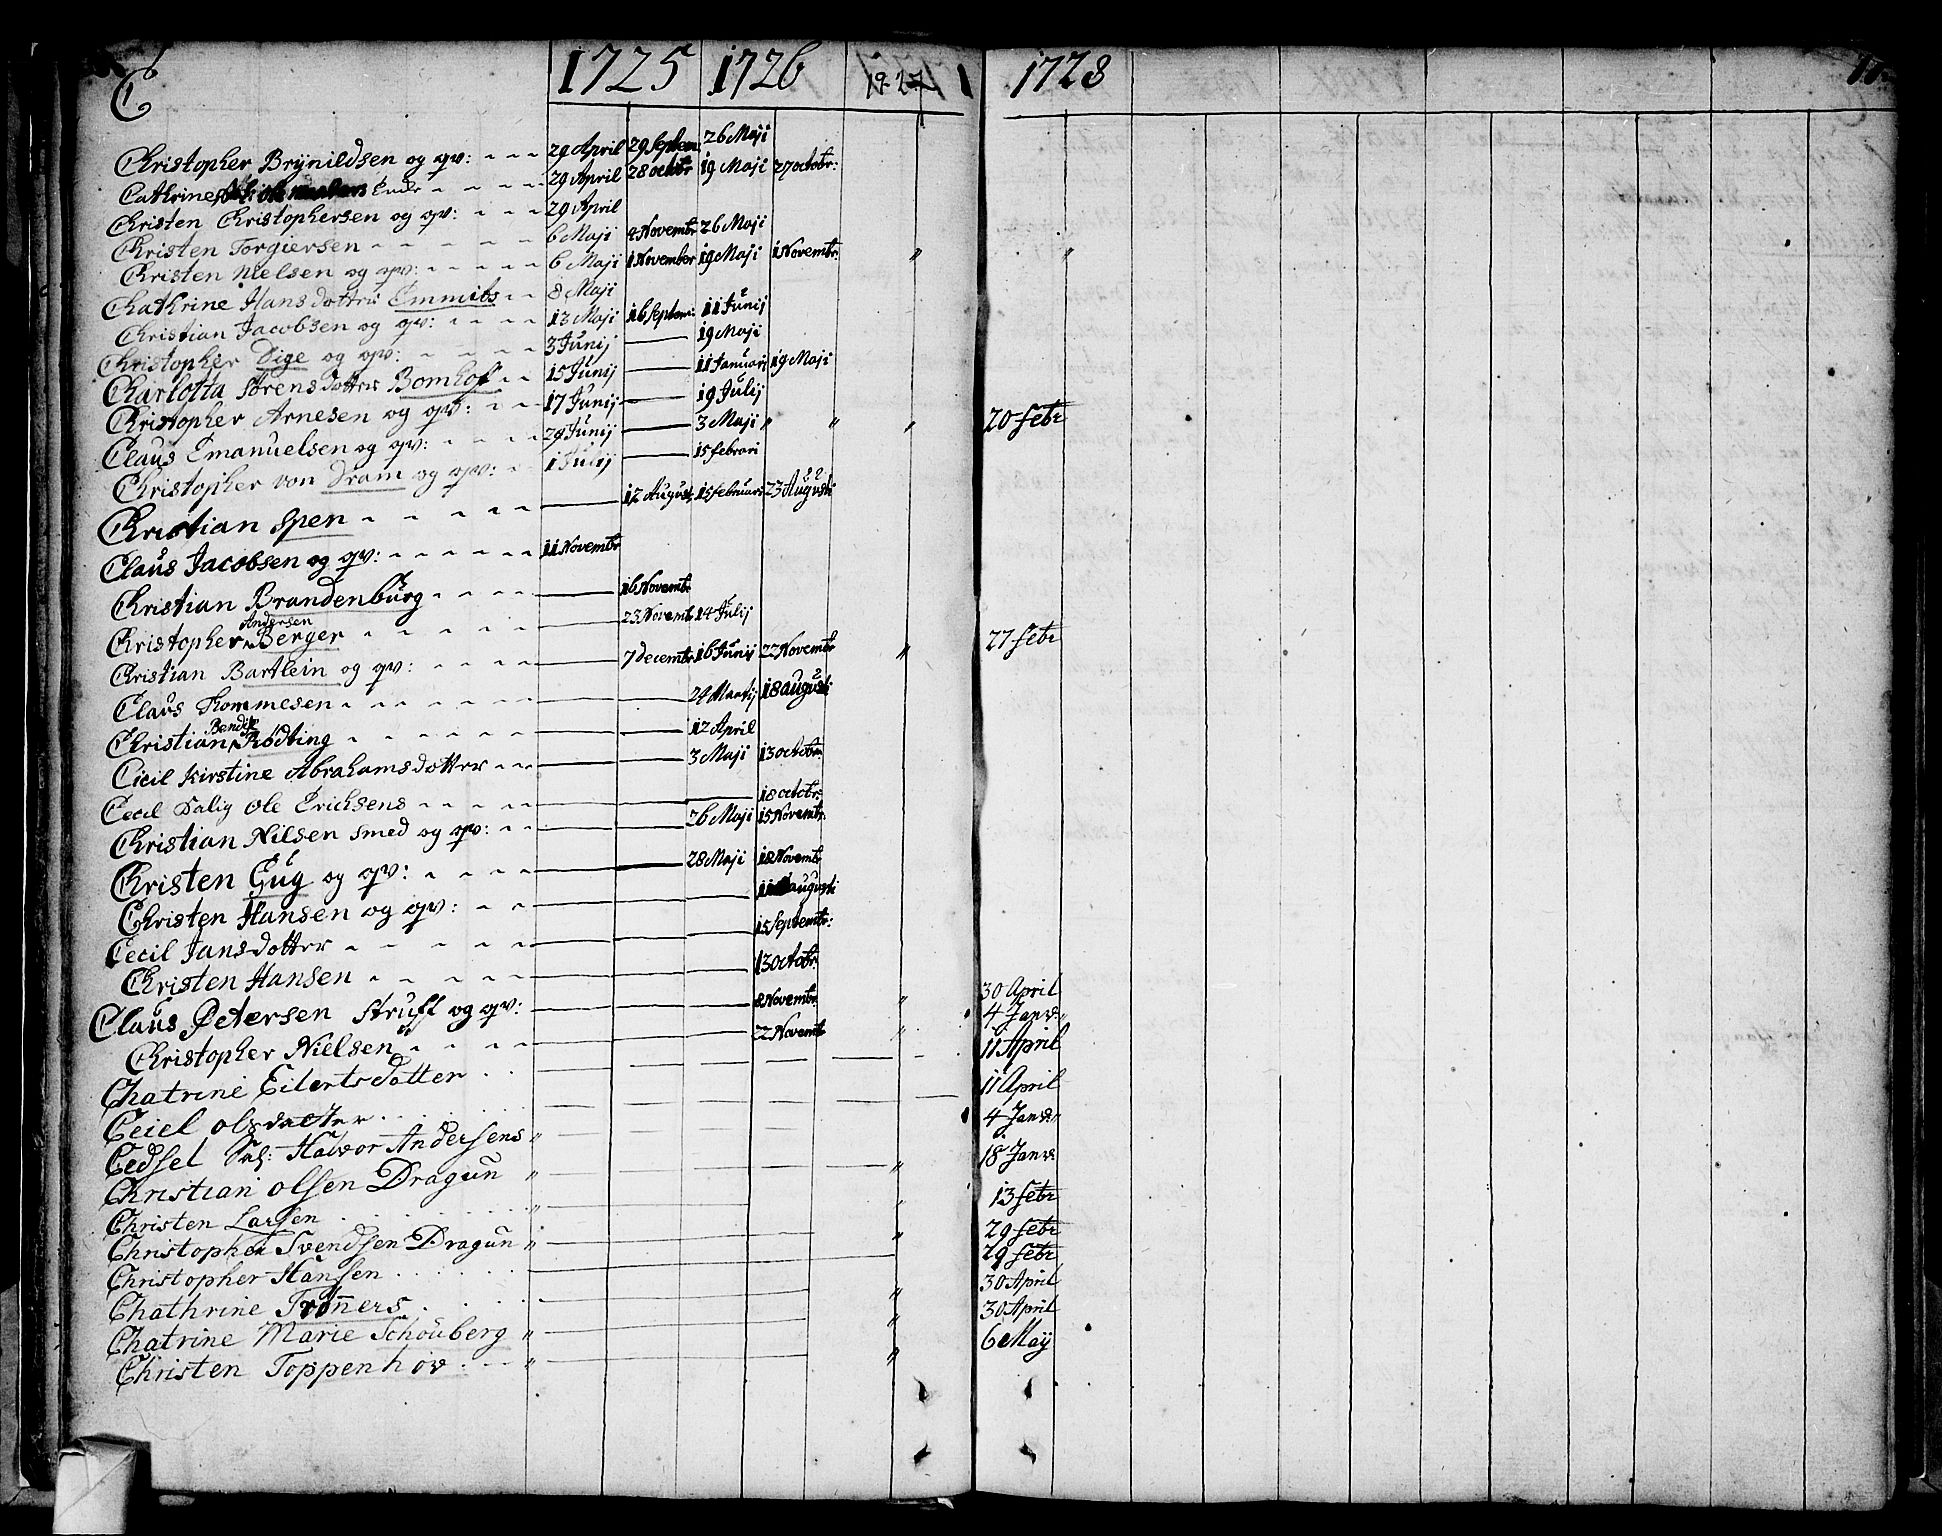 C 1725 1726 1727 1728
Christopher Brynildsen og qv: 29 April 29 Septem 26 Maji
Cathrine Enche 29 April 28 octbr 19 Maji 27 octobr:
Christen Christophersen og qv: 29 April
Christen Torgiersen 6 Maji 4 Novembr 26 Maji
Christen Nielsen og qv: 6 Maji 1 November 19 Maji 1 Novembr: " "
Chathrine Hans dotter Emmits 8 Maji
Christian Jacobsen og qv: 13 Maji 16 Septem: 11 Junij
Christopher Dige og qv: 3 Junij 19 Maji
Charlotta Sørens dotter Bomhof 15 Junij 11 Januari 19 Maji
Christopher Arnesen og qv: 17 Junij 19 Julij
Claus Emanuelsen og qv: 29 Junij 3 Maji " " " 20 febr
Christopher von Dram og qv: 1 Julij 15 febrari
Christian Spen 12 August, 15 februari 23 Augusti
Claus Jacobsen og qv: 11 Novembr
Christian Brandenburg 16 Novembr
Andersen
Christopher Berger 23 Novemb 14 Julij
Christian Bartlein og qv: 7 decembr 16 Junij 22 Novembr " 27 febr
Claus Thommesen 24 Martij 18 augusti
Bendix
Christian Rødting 12 April
Cicil Kirstine Abrahams dotter 3 Maji 13 octobr
Cecil Salig Ole Erichsens 18 octbr:
Christian Nilsen Smed og qv: 26 Maji 15 Novembr.
Christen Gug og qv: 28 Maji 18 Novembr
Christen Hansen og qv: 11 augusti
Cecil Jans dotter 15 Septembr:
Christen Hansen 13 Octobr:
Claus Petersen Struff og qv: 8 Novembr " 30 April
Christopher Nielsen 22 Novembr " 4 Janu:
Chatrine Eilerts datter 11 April
Ceiel ols datter 11 April
Cedsel Sal: Halvor Andersens " 4 Janu:
Christian olsen Dragun " " 18 Janu:
Christen Larsen " " 13 febr
Christopher Svendsen Dragun " " 29 febr
Christopher Hansen 29 febr
Chathrine Trønners " 30 April
Chatrine Marie Schouberg " " 30 April
Christen Toppenhov " " 6 Maij